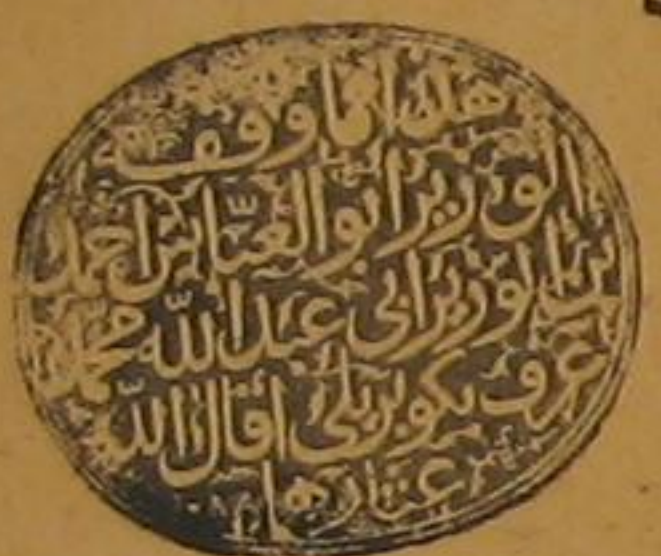 هذا ما وقف
الوزير أبو العباس احمد
بن الوزير ابي عبد الله محمد
عرف بكوبريلي اقال الله
عثارهما